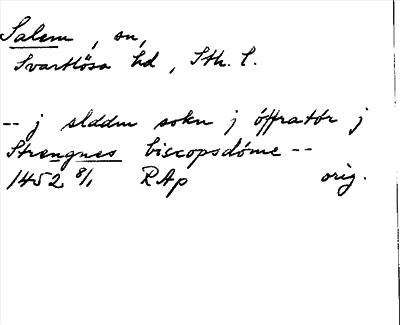 Salem, sn,
Svartlösa hd, Sth. l.
-- j slddm sokn j öffratör j
Strengnes biscopsdóme --
1452 8/1 RAp orig.